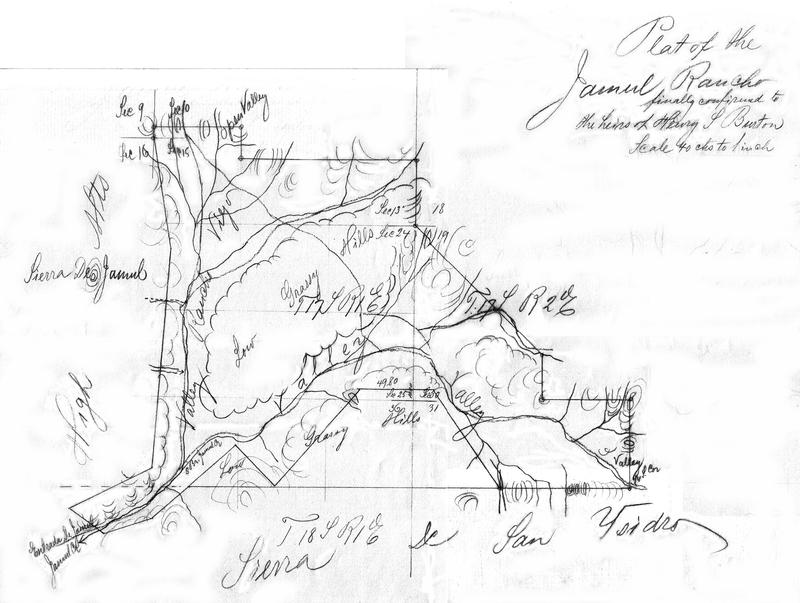 Plat of the
Jamul Rancho
finally confirmed to
the heirs of Henry S Burton
Scale 40 chs to 1 inch
Sec 9
Sec 10
Sec 16
Sec 15
Spear Valley
Mts
High
Sierra De Jamul
Viejo
Rancho
Valley
Sec 13
18
Hills Sec 24
19
Grassy
T 17 S R 1 E
T. 17 S R 2 E
Low
Valley
Valley
49.80
Sec 25
Sec 30
36
31
Hills
Grassy
Low
Valley
Entrada de Jamul
Jamul Ck
T 18 S R 1 E
Sierra de San Ysidro